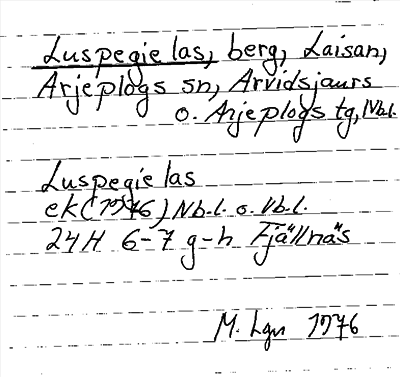 Luspegielas, berg, Laisan,
Arjeplogs sn, Arvidsjaurs
o. Arjeplogs tg, Nb.l.
Luspegielas
ek (1976) Nb.l. o. Vb.l.
24H 6-7 g-h Fjällnäs
M. Lgn 1976